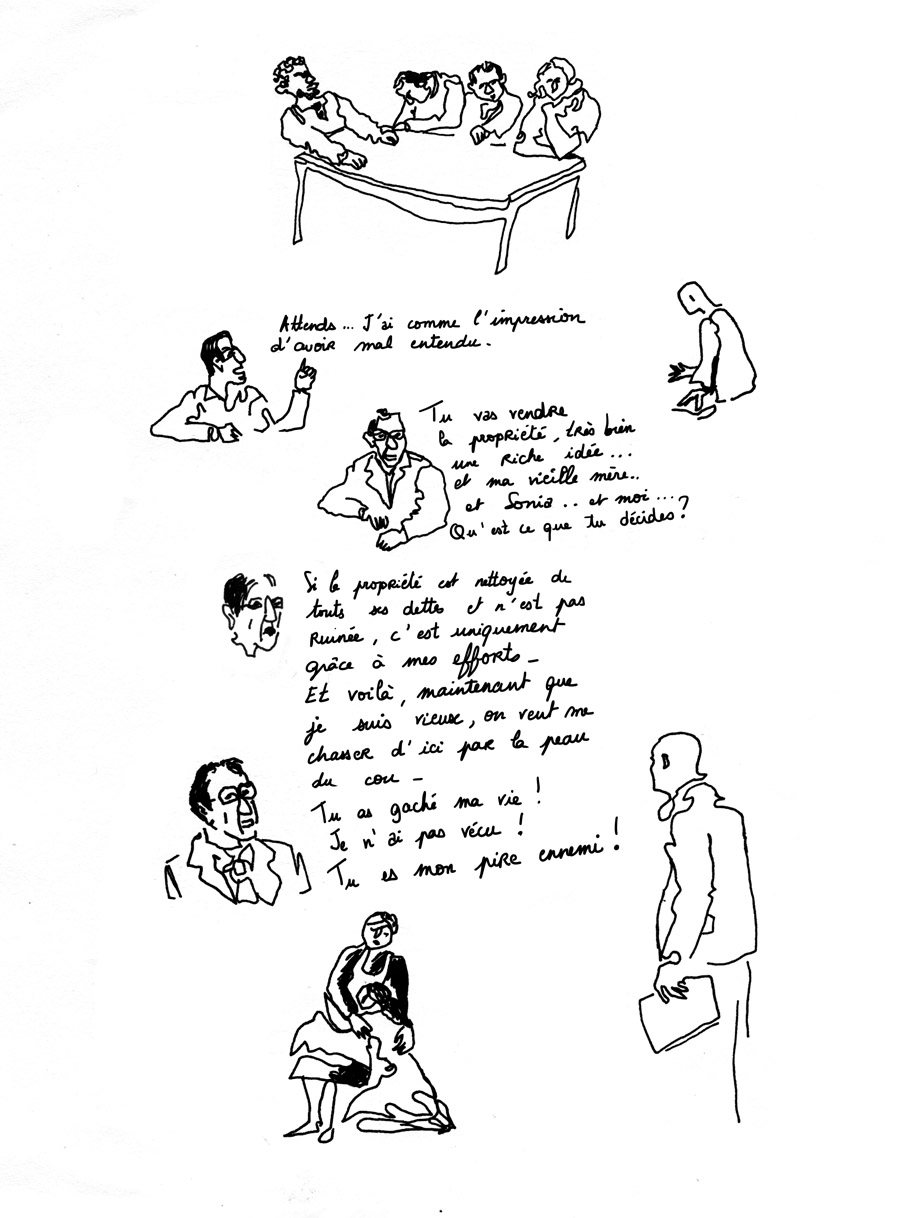 Attends... J'ai comme l'impression
d'avoir mal entendu.
Tu vas vendre
la propriété, très bien
une riche idée...
et ma vieille mère..
et Sonia.. et moi...
Qu'est ce que tu décides?
Si la propriété est nettoyée de
touts ses dettes et n'est pas
Ruinée, c'est uniquement
grâce à mes efforts_
Et voilà, maintenant que
je suis vieux, on veut me
chasser d'ici par la peau
du cou _
Tu as gaché ma vie !
Je n'ai pas vécu !
Tu es mon pire ennemi !